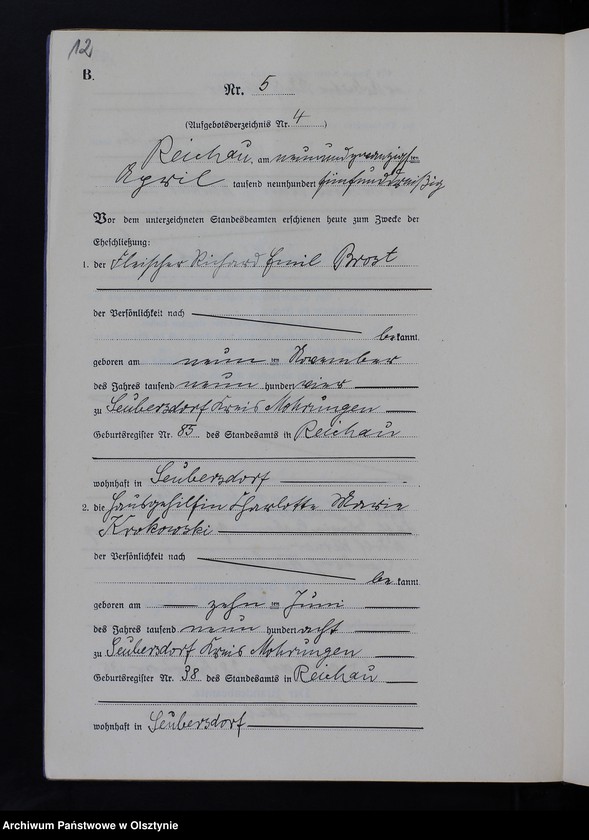 12
B.
Nr. 5
(Aufgebotsverzeichnis Nr. 4)
Reichau, am neunundzwanzigsten
April tausend neunhundert fünfunddreißig
Vor dem unterzeichneten Standesbeamten erschienen heute zum Zwecke der
Eheschließung:
1. der Fleischer Richard Emil Brost
der Persönlichkeit nach
bekannt,
geboren am neunten November
des Jahres tausend neunhundert vier
zu Seubersdorf Kreis Mohrungen
Geburtsregister Nr. 85 des Standesamts in Reichau
wohnhaft in Seubersdorf
2. die Hausgehilfin Charlotte Marie
Krokowski
der Persönlichkeit nach
bekannt,
geboren am zehnten Juni
des Jahres tausend neunhundert acht
zu Seubersdorf Kreis Mohrungen
Geburtsregister Nr. 38 des Standesamts in Reichau
wohnhaft in Seubersdorf
Archiwum Państwowe w Olsztynie